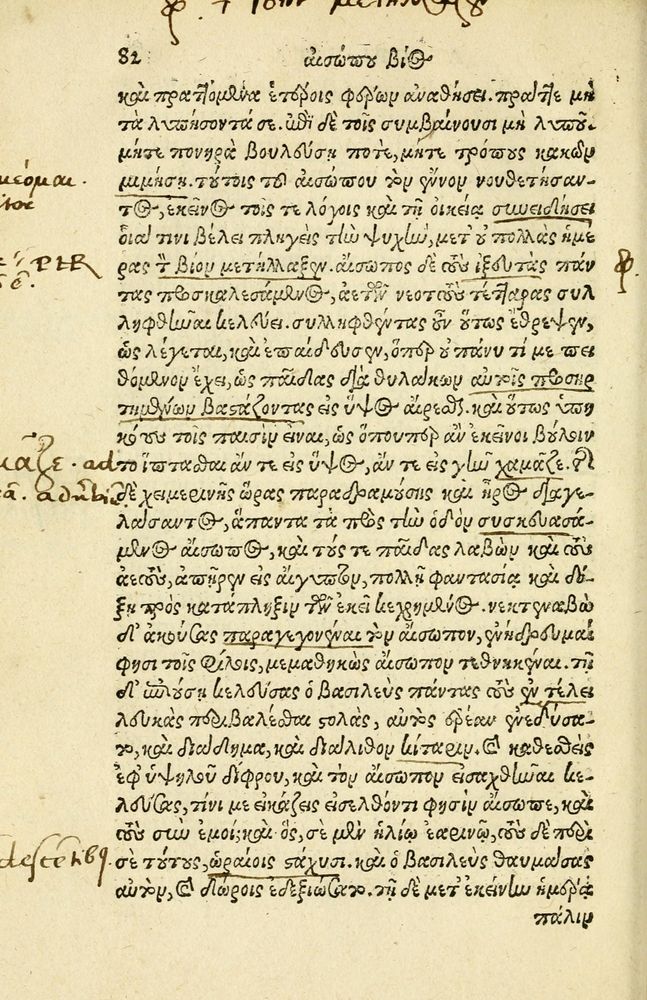 82 αἰσώπου βίος
καὶ πραττόμενα ἑτέροις φέρων ἀναθήσει. πρᾶττε μὴ
τὰ λυπήσοντά σε. ἐπὶ δὲ τοῖς συμβαίνουσι μὴ λυποῦ.
μήτε πονηρὰ βουλεύσῃ ποτὲ, μήτε τρόπους κακῶν
μιμήσῃ. τούτοις τοῦ αἰσώπου τὸν ἔννον νουθετήσαν-
τος, ἐκεῖνος τοῖς τε λόγοις καὶ τῇ οἰκείᾳ συνειδήσει
οἷά τινι βέλει πληγεὶς τὴν ψυχὴν, μετ' οὐ πολλὰς ἡμέ
ρας τὸν βίον μετήλλαξεν. αἴσωπος δὲ τοὺς ἰξευτὰς πάν
τας προσκαλεσάμενος, ἀετῶν νεοττοὺς τέτταρας συλ
ληφθῆναι κελεύει. συλληφθέντας οὖν οὕτως ἔθρεψεν,
ὡς λέγεται, καὶ ἐπαίδευσεν, ὅπερ οὐ πάνυ τί με πει
θόμενον ἔχει, ὡς παῖδας διὰ θυλάκων αὐτοῖς προσηρ
τημένων βαστάζοντας εἰς ὕψος αἴρεσθαι. καὶ οὕτως ὑπη
κόους τοῖς παισὶν εἶναι, ὡς ὅπουπερ ἂν ἐκεῖνοι βούλοιν
το ἵπτασθαι ἄν τε εἰς ὕψος, ἄν τε εἰς γῆν χαμᾶζε. τῆς
δὲ χειμερινῆς ὥρας παραδραμούσης καὶ ἦρος διαγε-
λάσαντος, ἅπαντα τὰ πρὸς τὴν ὁδὸν συσκευασά-
μενος αἴσωπος, καὶ τούς τε παῖδας λαβὼν καὶ τοὺς
ἀετοὺς, ἀπῆρεν εἰς αἴγυπτον, πολλῇ φαντασίᾳ καὶ δό-
ξῃ πρὸς κατάπληξιν τῶν ἐκεῖ κεχρημένος. νεκτεναβὼ
δ' ἀκούσας παραγεγονέναι τὸν αἴσωπον, ἐνήδρευμαί
φησι τοῖς φίλοις, μεμαθηκὼς αἴσωπον τεθνηκέναι. τῇ
δ' ἐπιούσῃ κελεύσας ὁ βασιλεὺς πάντας τοὺς ἐν τέλει
λευκὰς περιβαλέσθαι στολὰς, αὐτὸς ἐρέαν ἐνεδύσα-
το, καὶ διάδημα, καὶ διάλιθον κίταριν. καὶ καθεσθεὶς
ἐφ' ὑψηλοῦ δίφρου, καὶ τὸν αἴσωπον εἰσαχθῆναι κε-
λεύσας, τίνι με εἰκάζεις εἰσελθόντι φησὶν αἴσωπε, καὶ
τοὺς σὺν ἐμοί; καὶ ὃς, σὲ μὲν ἡλίῳ ἐαρινῷ, τοὺς δὲ περὶ
σὲ τούτους, ὡραίοις στάχυσι. καὶ ὁ βασιλεὺς θαυμάσας
αὐτὸν, καὶ δώροις ἐδεξιώσατο. τῇ δὲ μετ' ἐκείνην ἡμέρᾳ
πάλιν